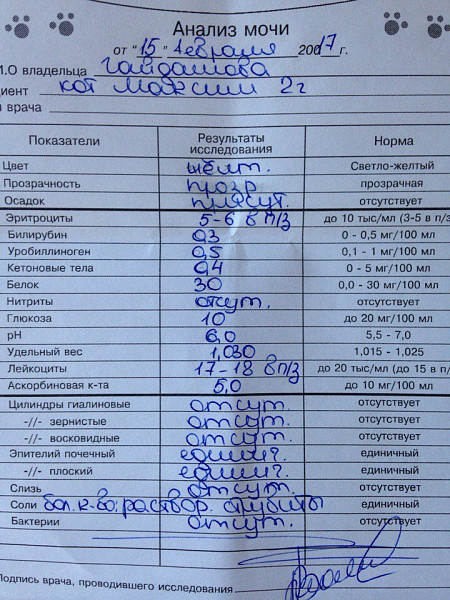 Анализ мочи
от "15" февраля 2017 г.
И.О владельца Гайдашова
циент кот Максим 2г
я врача
Показатели Результаты исследования Норма
Цвет жёлт. Светло-желтый
Прозрачность прозр прозрачная
Осадок присут. отсутствует
Эритроциты 5-6 в п/з до 10 тыс/мл (3-5 в п/з
Билирубин 0,3 0 - 0,5 мг/100 мл
Уробиллиноген 0,5 0,1 - 1 мг/100 мл
Кетоновые тела 0,4 0 - 5 мг/100 мл
Белок 30 0,0 - 30 мг/100 мл
Нитриты отсут. отсутствует
Глюкоза 10 до 20 мг/100 мл
pH 6,0 5,5 - 7,0
Удельный вес 1,030 1,015 - 1,025
Лейкоциты 17-18 в п/з до 20 тыс/мл (до 15 в п/
Аскорбиновая к-та 5,0 до 10 мг/100 мл
Цилиндры гиалиновые отсут. отсутствует
-//- зернистые отсут. отсутствует
-//- восковидные отсут. отсутствует
Эпителий почечный единич. единичный
-//- плоский единич. единичный
Слизь отсут. отсутствует
Соли бол. к-во: раствор. струвиты единичный
Бактерии отсут. отсутствует
Подпись врача, проводившего исследования